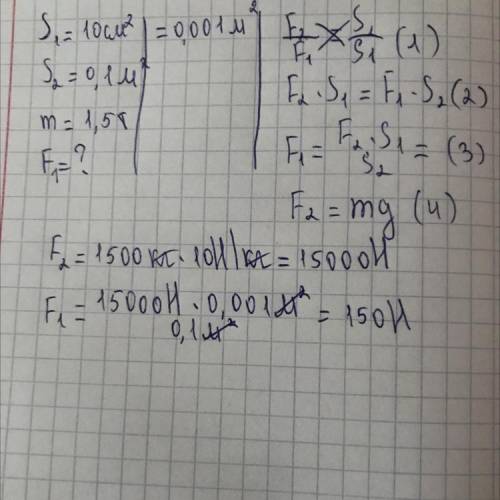 S₁ = 10 см² = 0,001 м²
S₂ = 0,1 м²
m = 1,5т
F₁ = ?
F₂/F₁ = S₁/S1 (1)
F₂ · S₁ = F₁ · S₂ (2)
F₁ = F₂ · S₁ / S₂ = (3)
F₂ = mg (4)
F₂ = 1500 кг · 10Н/кг = 15000Н
F₁ = 15000Н · 0,001 м² / 0,1 м² = 150Н